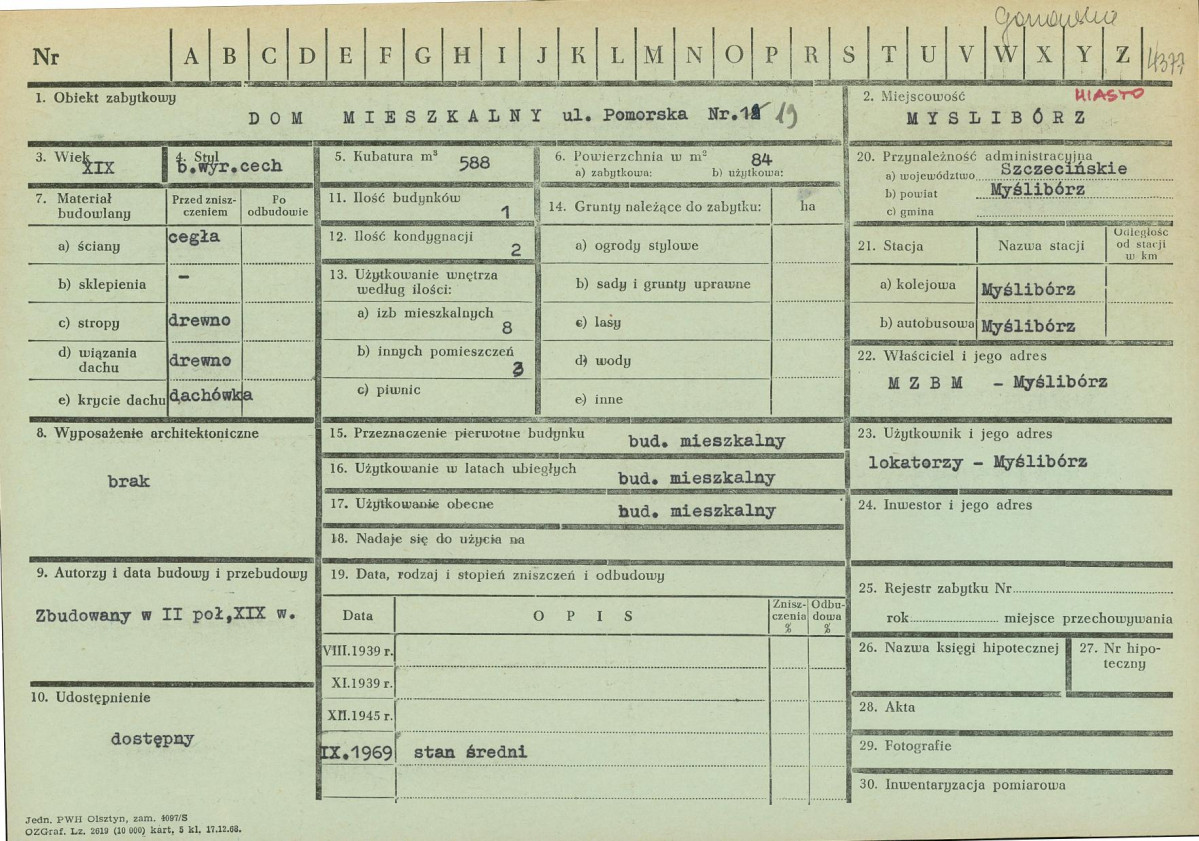 Nr A B C D E F G H I J K L M N O P R S T U V W X Y Z 4377
1. Obiekt zabytkowy
DOM MIESZKALNY ul. Pomorska Nr. 19
2. Miejscowość MIASTO
MYSLIBÓRZ
3. Wiek
XIX
4. Styl
b.wyr.cech
5. Kubatura m³ 588
6. Powierzchnia w m² 84
a) zabytkowa: b) użytkowa:
20. Przynależność administracyjna
a) województwo Szczecińskie
b) powiat Myślibórz
c) gmina
7. Materiał budowlany
Przed znisz-
czeniem
Po
odbudowie
a) ściany cegła
b) sklepienia –
c) stropy drewno
d) wiązania
dachu drewno
e) krycie dachu dachówka
11. Ilość budynków 1
12. Ilość kondygnacji 2
13. Użytkowanie wnętrza
według ilości:
a) izb mieszkalnych 8
b) innych pomieszczeń 3
c) piwnic
14. Grunty należące do zabytku: ha
a) ogrody stylowe
b) sady i grunty uprawne
c) lasy
d) wody
e) inne
21. Stacja Nazwa stacji
Odległość
od stacji
w km
a) kolejowa Myślibórz
b) autobusowa Myślibórz
22. Właściciel i jego adres
MZBM - Myślibórz
8. Wyposażenie architektoniczne
brak
15. Przeznaczenie pierwotne budynku bud. mieszkalny
16. Użytkowanie w latach ubiegłych bud. mieszkalny
17. Użytkowanie obecne bud. mieszkalny
18. Nadaje się do użycia na
23. Użytkownik i jego adres
lokatorzy - Myślibórz
24. Inwestor i jego adres
9. Autorzy i data budowy i przebudowy
Zbudowany w II poł,XIX w.
19. Data, rodzaj i stopień zniszczeń i odbudowy
Data OPIS
Znisz-
czenia
%
Odbu-
dowa
%
VIII.1939 r.
XI.1939 r.
XII.1945 r.
IX.1969 stan średni
25. Rejestr zabytku Nr
rok miejsce przechowywania
26. Nazwa księgi hipotecznej
27. Nr hipo-
teczny
10. Udostępnienie
dostępny
28. Akta
29. Fotografie
30. Inwentaryzacja pomiarowa
Jedn. PWH Olsztyn, zam. 4097/S
OZGraf. Lz. 2619 (10 000) kart, 5 kl. 17.12.68.